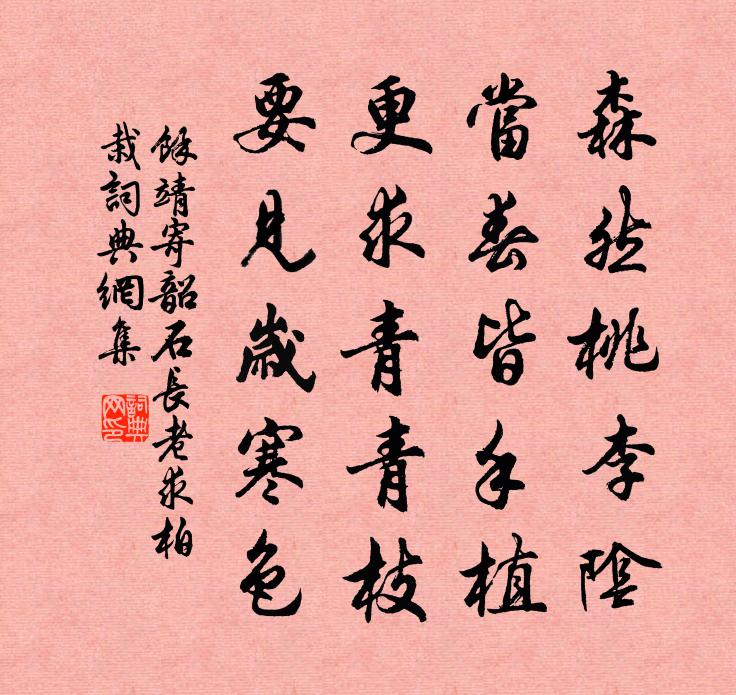 森然桃李陰
當春皆手植
更求青青枝
要見歲寒色
餘靖寄韶石長老求柏
栽詞典網集
詞典
网印